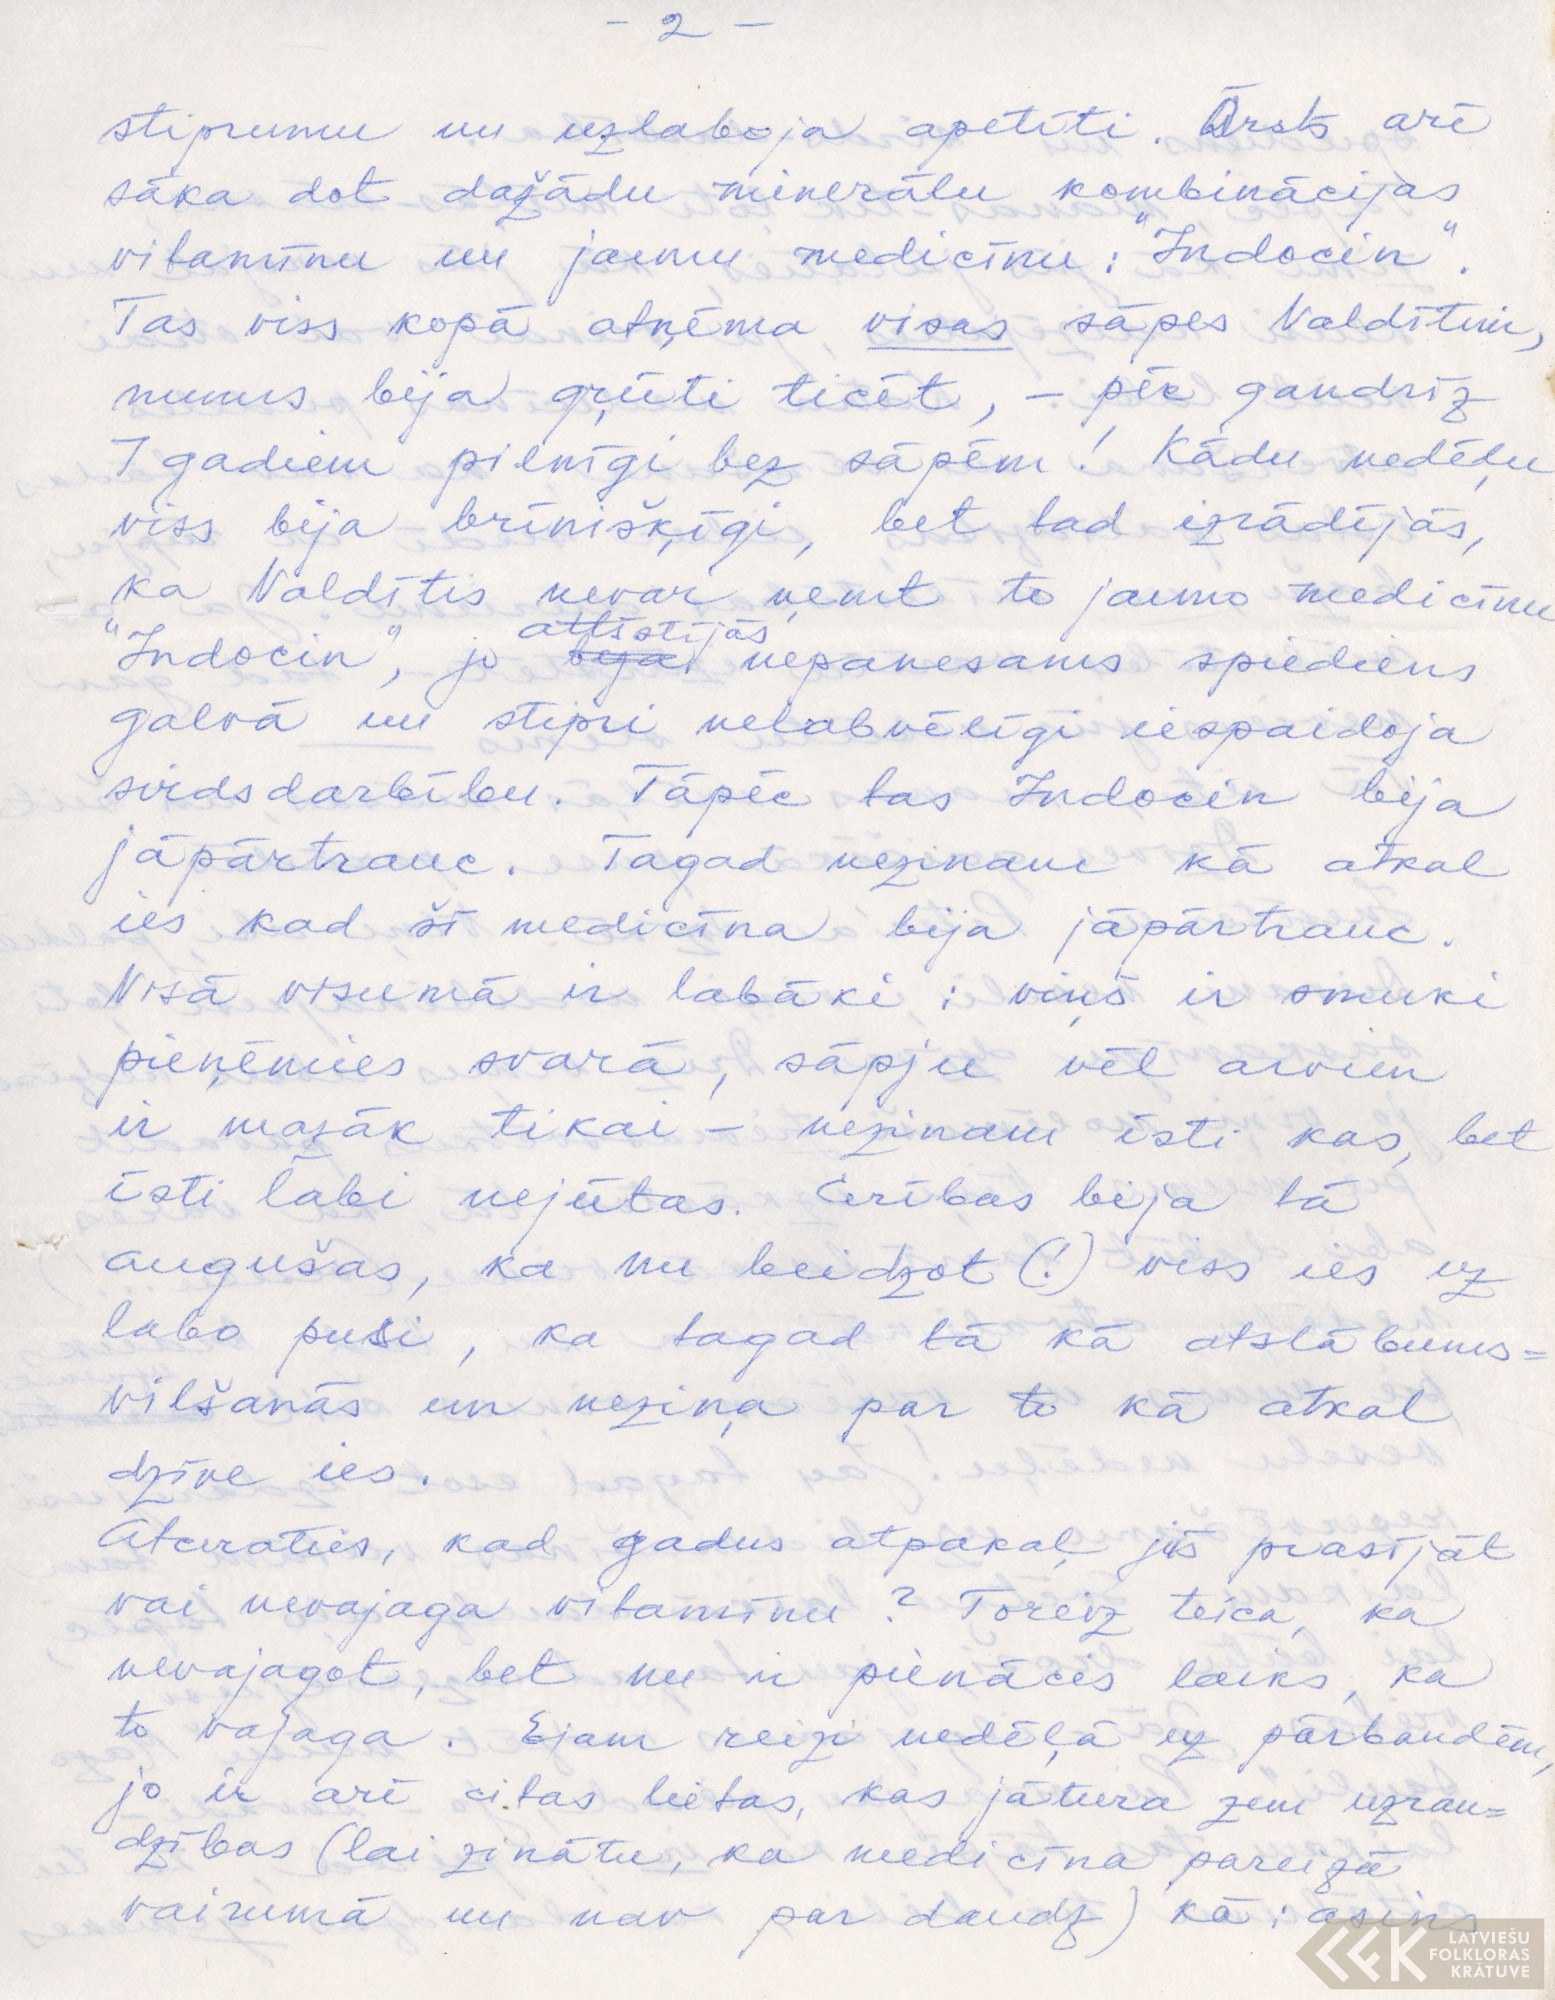 - 2 -
stiprumu un uzlaboja apetīti. Ārsts arī
sāka dot dažādu minerālu kombinācijas
vitamīnu un jaunu medicīnu: "Indocin".
Tas viss kopā atņēma visas sāpes Valdītim,
mums bija grūti ticēt, – pēc gandrīz
7 gadiem pilnīgi bez sāpēm! Kādu nedēļu
viss bija brīnišķīgi, bet tad izrādījās,
ka Valdītis nevar ņemt to jauno medicīnu
"Indocin", jo bija attīstījās nepanesams spiediens
galvā un stipri nelabvēlīgi iespaidoja
sirdsdarbību. Tāpēc tas Indocin bija
jāpārtrauc. Tagad nezinam kā atkal
ies kad šī medicīna bija jāpārtrauc.
Visā visumā ir labāki: viņš ir smuki
pieņēmies svarā, sāpju vēl arvien
ir mazāk tikai – nezinam īsti kas, bet
īsti labi nejūtas. Cerības bija tā
augušas, ka nu beidzot (!) viss ies uz
labo pusi, ka tagad tā kā atslābums=
vilšanās un neziņa par to kā atkal
dzīve ies.
Atceraties, kad gadus atpakaļ jūs prasījāt
vai nevajaga vitamīnu? Toreiz teica, ka
nevajagot, bet nu ir pienācis laiks, ka
to vajaga. Ejam reizi nedēļā uz pārbaudēm,
jo ir arī citas lietas, kas jātura zem uzrau=
dzības (lai zinātu, ka medicīna pareizā
vairumā un nav par daudz) kā: asins
LATVIEŠU
FOLKLORAS
KRĀTUVE